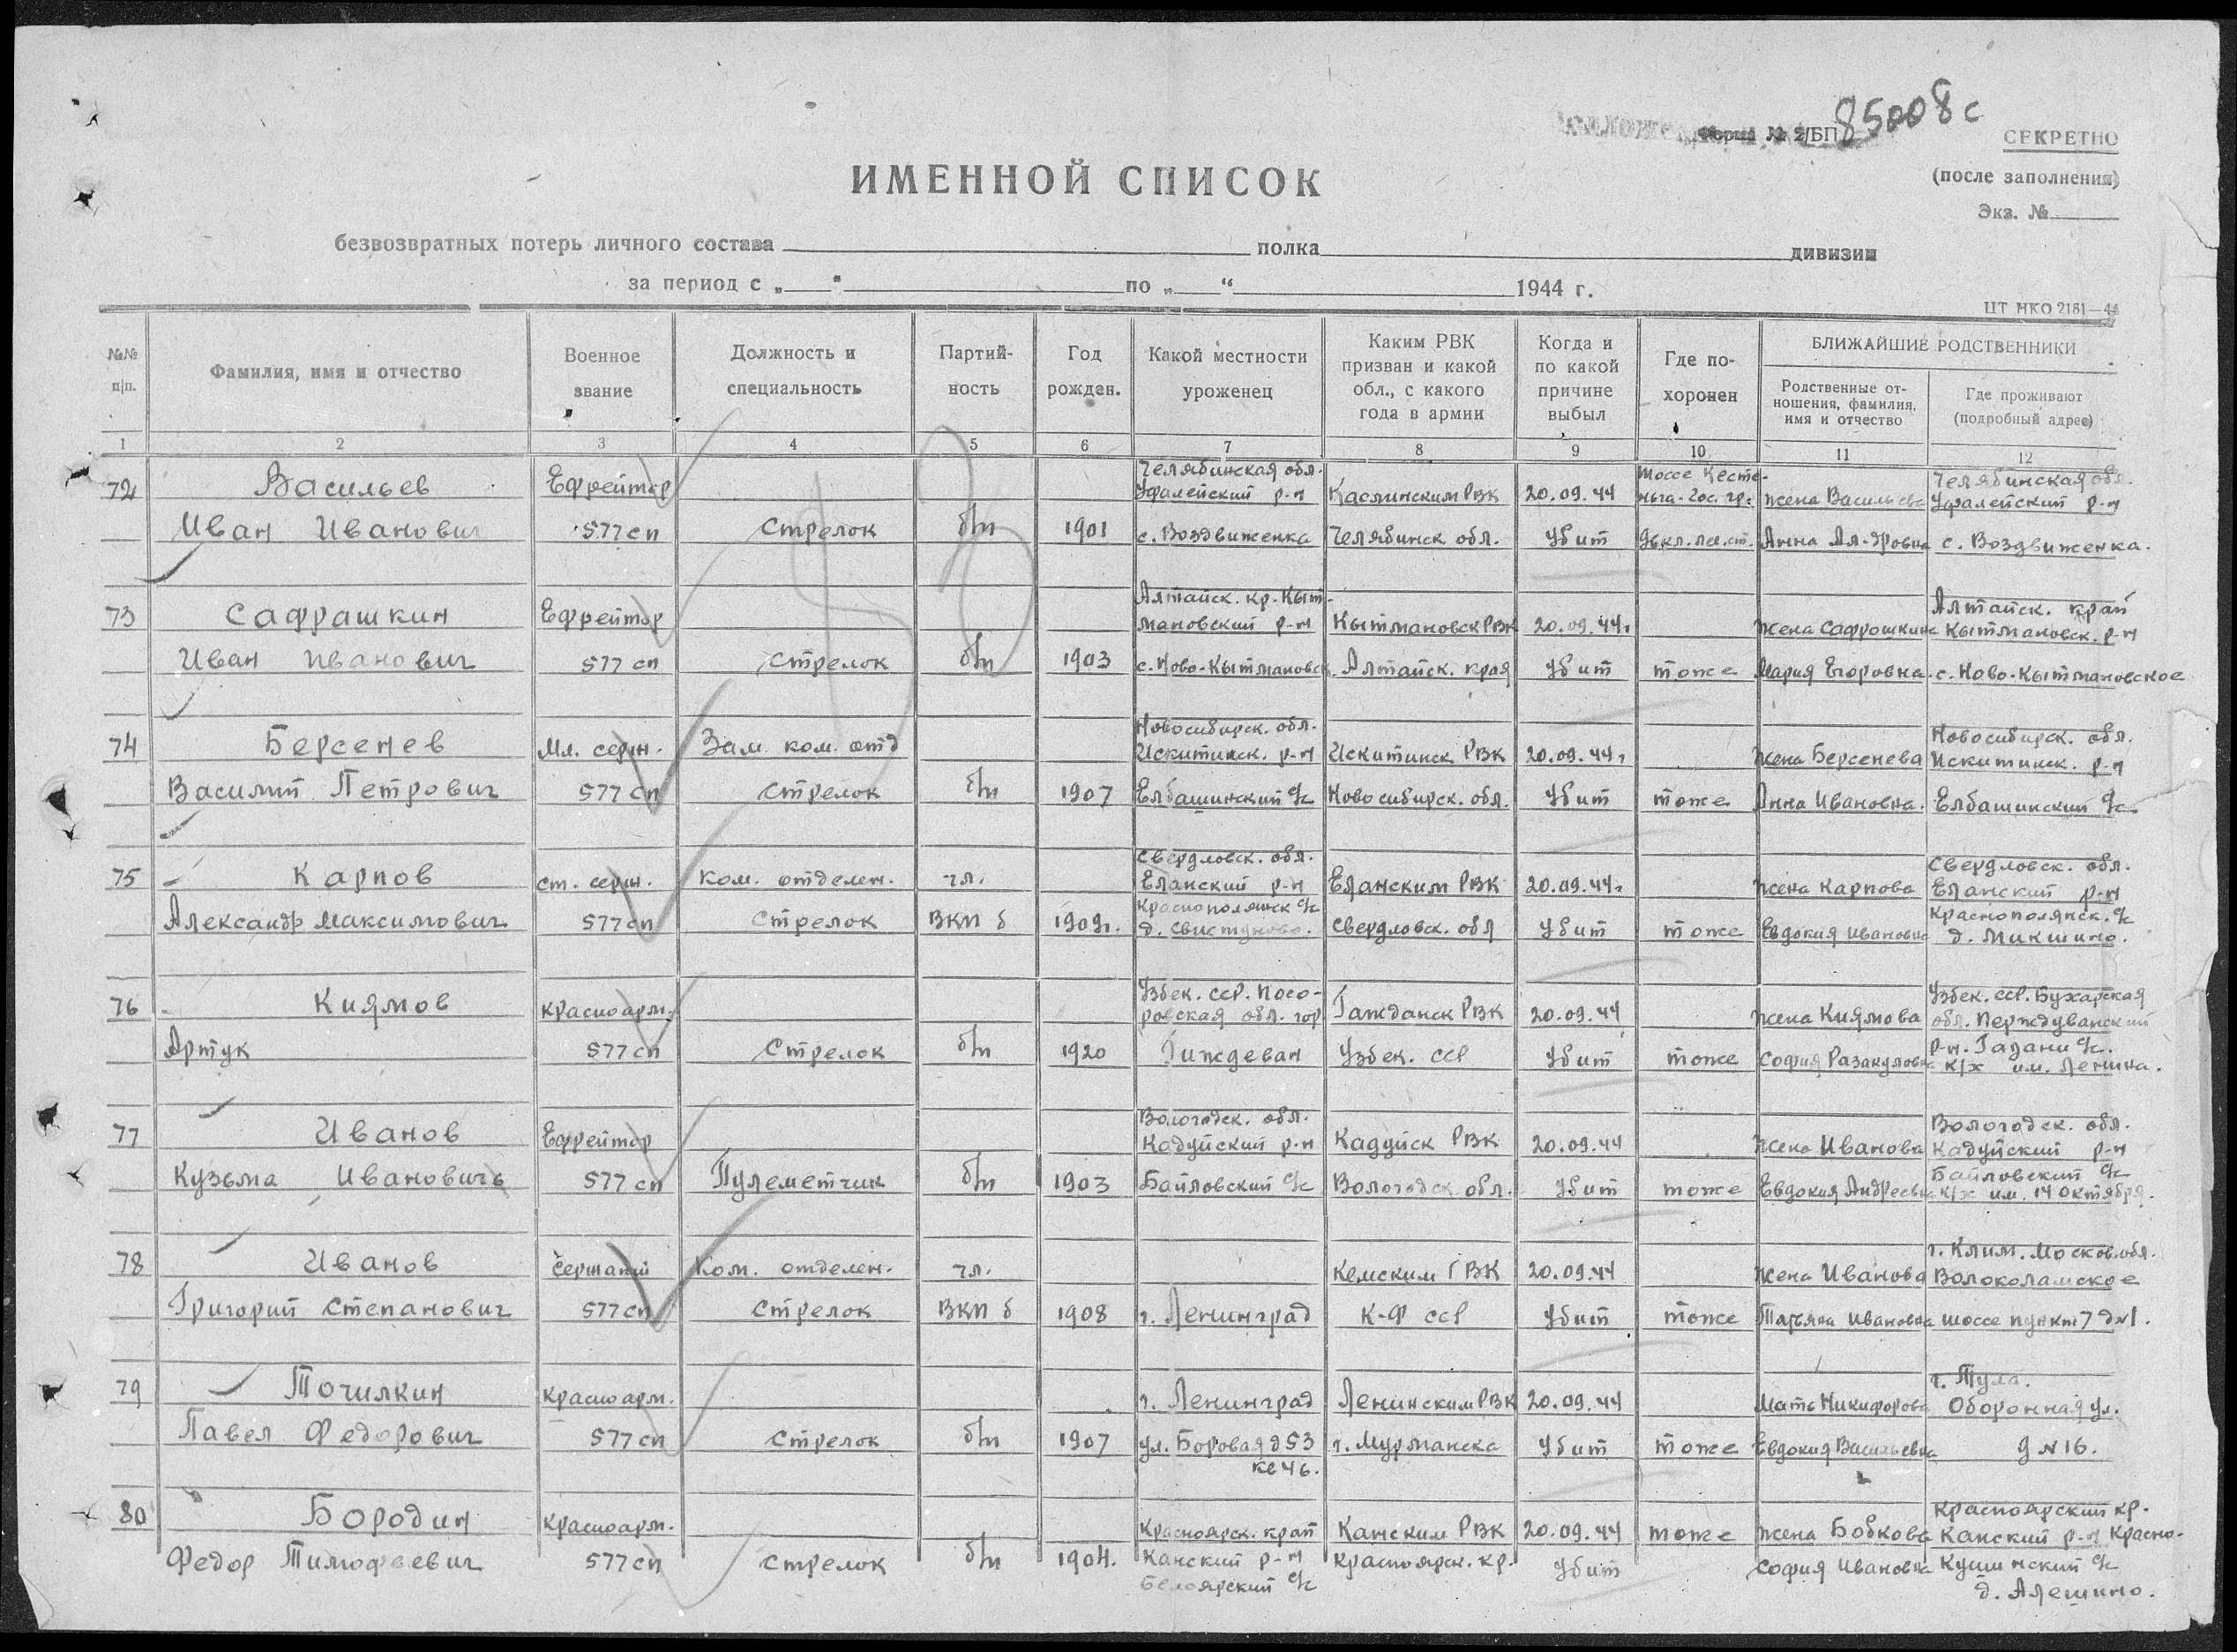 Форма № 2/БП 85008с
СЕКРЕТНО
(после заполнения)
Экз. №
ИМЕННОЙ СПИСОК
безвозвратных потерь личного состава полка дивизии
за период с „ “ по „ “ 1944 г.
ЦТ НКО 2181—44
№№ п/п.
Фамилия, имя и отчество
Военное звание
Должность и специальность
Партий-
ность
Год рожден.
Какой местности уроженец
Каким РВК
призван и какой
обл., с какого
года в армии
Когда и
по какой
причине
выбыл
Где по-
хоронен
БЛИЖАЙШИЕ РОДСТВЕННИКИ
Родственные от-
ношения, фамилия,
имя и отчество
Где проживают
(подробный адрес)
1 2 3 4 5 6 7 8 9 10 11 12
Челябинская обл. шоссе Кесте- Челябинская обл.
72 Васильев Ефрейтор Уфалейский р-н Каслинским РВК 20.09.44 ньга-Гос. гр. жена Васильева Уфалейский р-н
Иван Иванович 577 сп Стрелок б/п 1901 с. Воздвиженка Челябинск обл. Убит Анна Ал-дровна с. Воздвиженка.
Алтайск. кр. Кыт- Алтайск. край
73 Сафрашкин Ефрейтор мановский р-н Кытмановск РВК 20.09.44г жена Сафрошкина Кытмановск. р-н
Иван Иванович 577 сп Стрелок б/п 1903 с. Ново-Кытмановск. Алтайск. края Убит тоже Мария Егоровна. с. Ново-Кытмановское
Новосибирск. обл. Новосибирск. обл.
74 Берсенев Мл. серж. Зам. ком. отд Искитимск. р-н Искитимск РВК 20.09.44г жена Берсенева Искитимск. р-н
Василий Петрович 577 сп Стрелок б/п 1907 Елбашинский с/с Новосибирск. обл. Убит тоже Анна Ивановна. Елбашинский с/с
Свердловск. обл. Свердловск. обл.
75 Карпов ст. серж. ком. отделен. чл. Еланский р-н Еланским РВК 20.09.44г жена Карпова Еланский р-н
Краснополянск с/с Краснополянск. с/с
Александр Максимович 577 сп Стрелок ВКП б 1909г. д. Свистуново. Свердловск. обл Убит тоже Евдокия Ивановна д. Микшино.
Узбек. ССР. Посо- Узбек. ССР. Бухарская
76 Киямов красноарм. ровская обл. гор Гажданск РВК 20.09.44 жена Киямова обл. Перждуванский
Артук 577 сп Стрелок б/п 1920 Гиждеван Узбек. ССР Убит тоже София Разакуловна р-н. Газани с/с.
к/х им. Ленина.
Вологодск. обл. Вологодск. обл.
77 Иванов Ефрейтор Кадуйский р-н Кадуйск РВК 20.09.44 жена Иванова Кадуйский р-н
Байловский с/с
Кузьма Ивановичь 577 сп Пулеметчик б/п 1903 Байловский с/с Вологодск. обл. Убит тоже Евдокия Андреевна к/х им. 14 Октября.
г. Клим. Москов. обл.
78 Иванов Сержант Ком. отделен. чл. Кемским ГВК 20.09.44 жена Иванова Волоколамское
Григорий Степанович 577 сп Стрелок ВКП б 1908 г. Ленинград К-Ф ССР Убит тоже Татьяна Ивановна шоссе пункт 7 д№1.
г. Тула.
79 Точилкин Красноарм. г. Ленинград Ленинским РВК 20.09.44 Мать Никифорова Оборонная ул.
Павел Федорович 577 сп Стрелок б/п 1907 ул. Боровая д 53 г. Мурманска Убит тоже Евдокия Васильевна д №16.
кв 46.
Красноярский кр.
80 Бородин Красноарм. Красноярск. край Канским РВК 20.09.44 тоже жена Бобкова Канский р-н Красно-
Федор Тимофеевич 577 сп Стрелок б/п 1904. Канский р-н Красноярск. кр. Убит София Ивановна Кушинский с/с
Белоярский с/с д. Алешино.